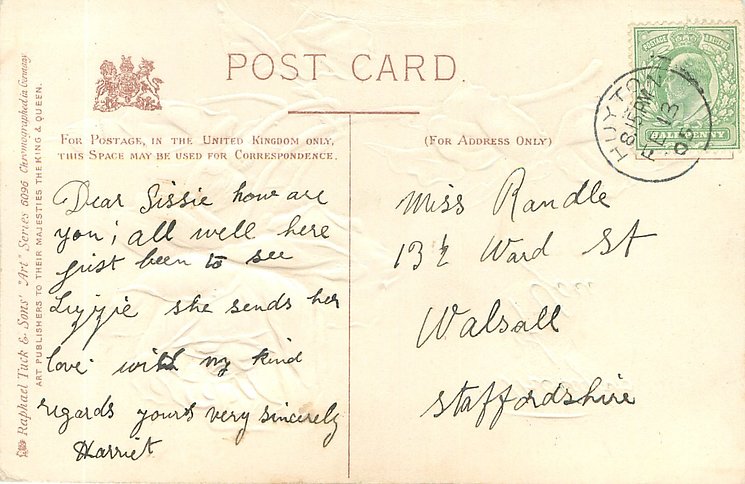 POST CARD.
FOR POSTAGE, IN THE UNITED KINGDOM ONLY,
THIS SPACE MAY BE USED FOR CORRESPONDENCE.
(FOR ADDRESS ONLY)
Raphael Tuck & Sons' "Art" Series 6096 Chromographed in Germany
ART PUBLISHERS TO THEIR MAJESTIES THE KING & QUEEN.
POSTAGE & REVENUE
HALFPENNY
HUYTON
8 15 PM
FE 13
06
Dear Sissie how are
you; all well here
just been to see
Lizzie she sends her
love with my kind
regards yours very sincerely
Harriet
Miss Randle
13½ Ward St
Walsall
Staffordshire